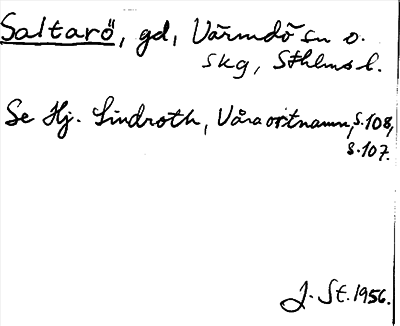 Saltarö, gd, Värmdö sn o.
skg, Sthlms l.
Se Hj. Lindroth, Våra ortnamn, s.108,
s.107.
J. St. 1956.